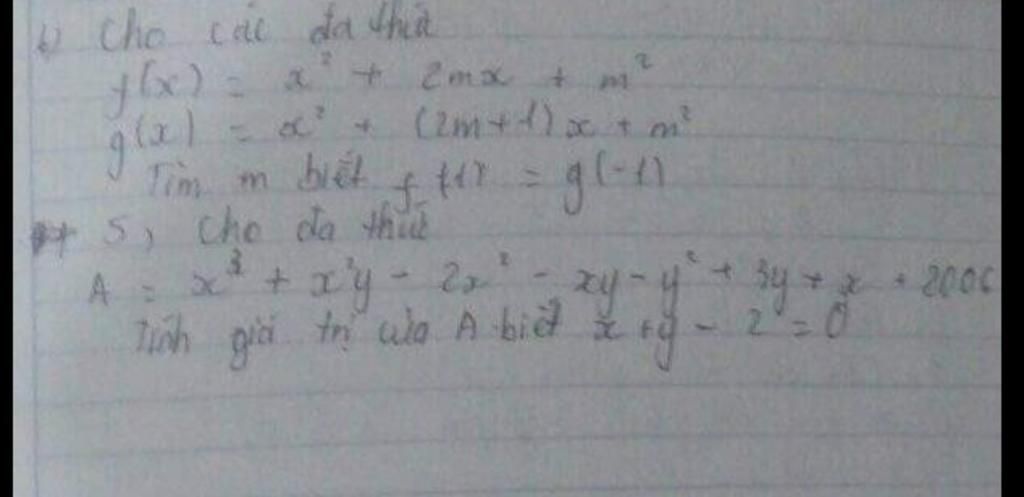 b) Cho các đa thức
f(x) = x² + 2mx + m²
g(x) = x² + (2m+1)x + m²
Tìm m biết f(1) = g(-1)
5, Cho đa thức
A = x³ + x²y - 2x² - xy - y² + 3y + x + 2006
Tính giá trị của A biết x + y - 2 = 0